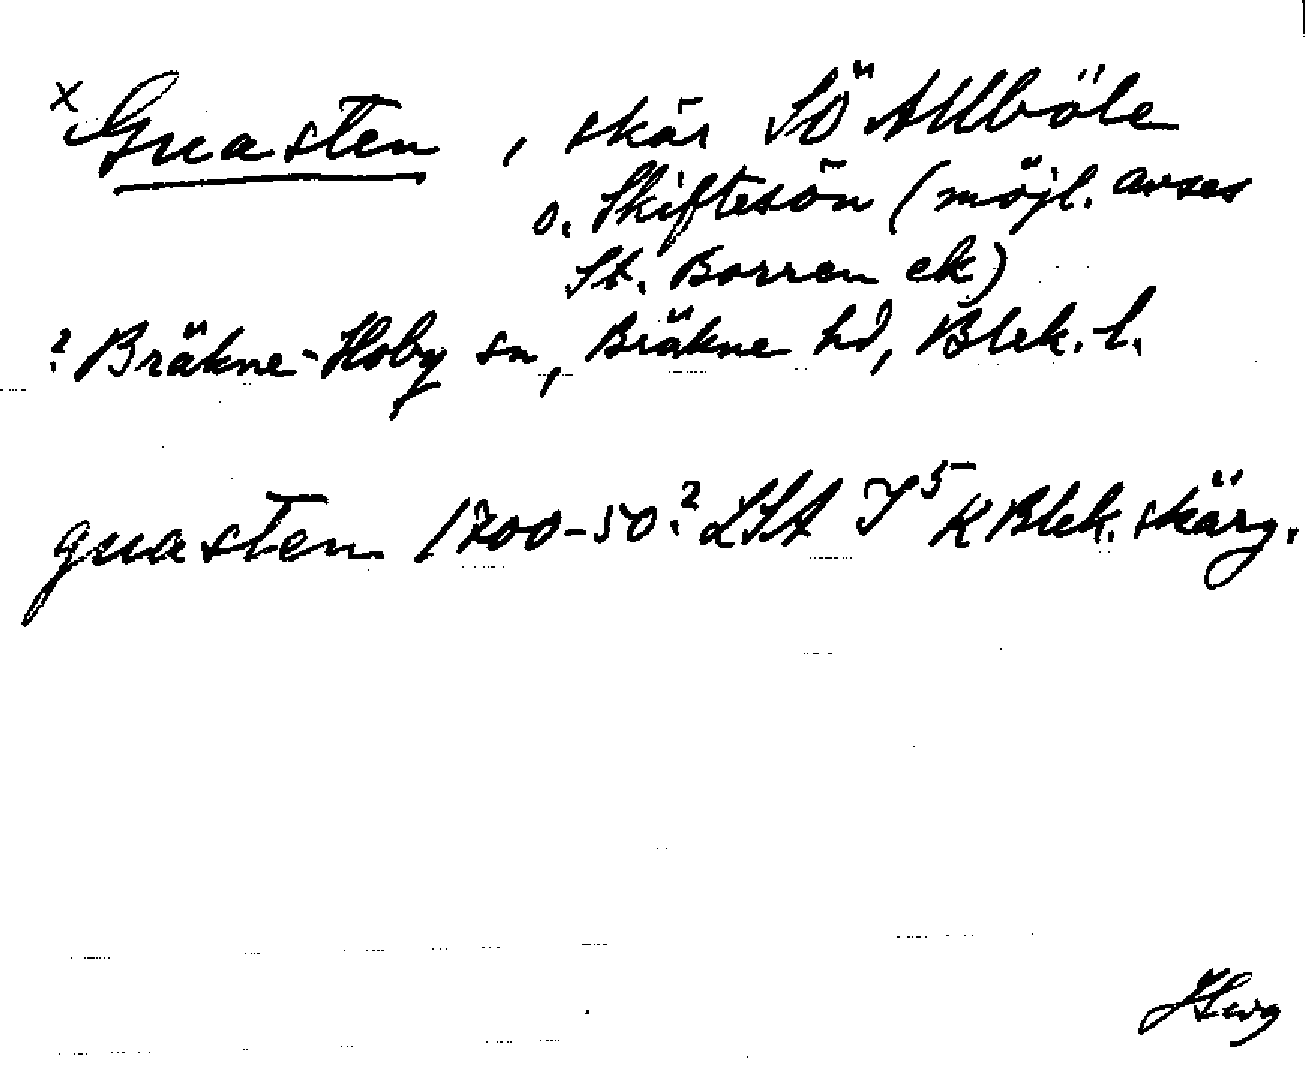 x Guasten, skär SÖ Allböle
o. Skiftesön (möjl. avses
St. Borren ek)
? Bräkne-Hoby sn, Bräkne hd, Blek. l.
guasten 1700-50? LSA I 5 K Blek. skärg.